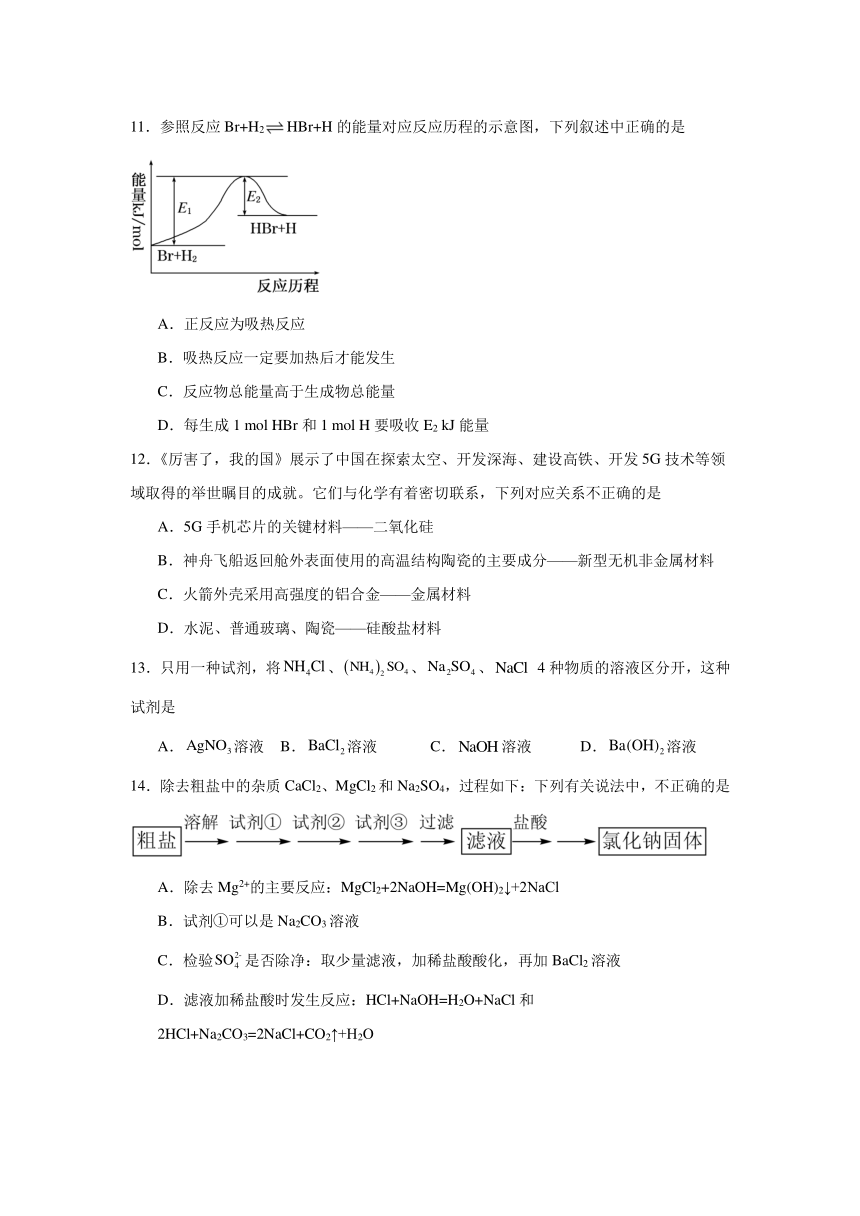 11．参照反应 Br+H₂⇌HBr+H 的能量对应反应历程的示意图，下列叙述中正确的是
能量kJ/mol
E₁
E₂
HBr+H
Br+H₂
反应历程
A．正反应为吸热反应
B．吸热反应一定要加热后才能发生
C．反应物总能量高于生成物总能量
D．每生成 1 mol HBr 和 1 mol H 要吸收 E₂ kJ 能量
12．《厉害了，我的国》展示了中国在探索太空、开发深海、建设高铁、开发 5G 技术等领
域取得的举世瞩目的成就。它们与化学有着密切联系，下列对应关系不正确的是
A．5G 手机芯片的关键材料——二氧化硅
B．神舟飞船返回舱外表面使用的高温结构陶瓷的主要成分——新型无机非金属材料
C．火箭外壳采用高强度的铝合金——金属材料
D．水泥、普通玻璃、陶瓷——硅酸盐材料
13．只用一种试剂，将 NH₄Cl 、(NH₄)₂SO₄、Na₂SO₄ 、NaCl 4 种物质的溶液区分开，这种
试剂是
A．AgNO₃ 溶液 B．BaCl₂ 溶液 C．NaOH 溶液 D．Ba(OH)₂ 溶液
14．除去粗盐中的杂质 CaCl₂、MgCl₂ 和 Na₂SO₄，过程如下：下列有关说法中，不正确的是
粗盐 溶解 试剂① 试剂② 试剂③ 过滤 滤液 盐酸 氯化钠固体
A．除去 Mg²⁺的主要反应：MgCl₂+2NaOH=Mg(OH)₂↓+2NaCl
B．试剂①可以是 Na₂CO₃ 溶液
C．检验 SO₄²⁻ 是否除净：取少量滤液，加稀盐酸酸化，再加 BaCl₂ 溶液
D．滤液加稀盐酸时发生反应：HCl+NaOH=H₂O+NaCl 和
2HCl+Na₂CO₃=2NaCl+CO₂↑+H₂O